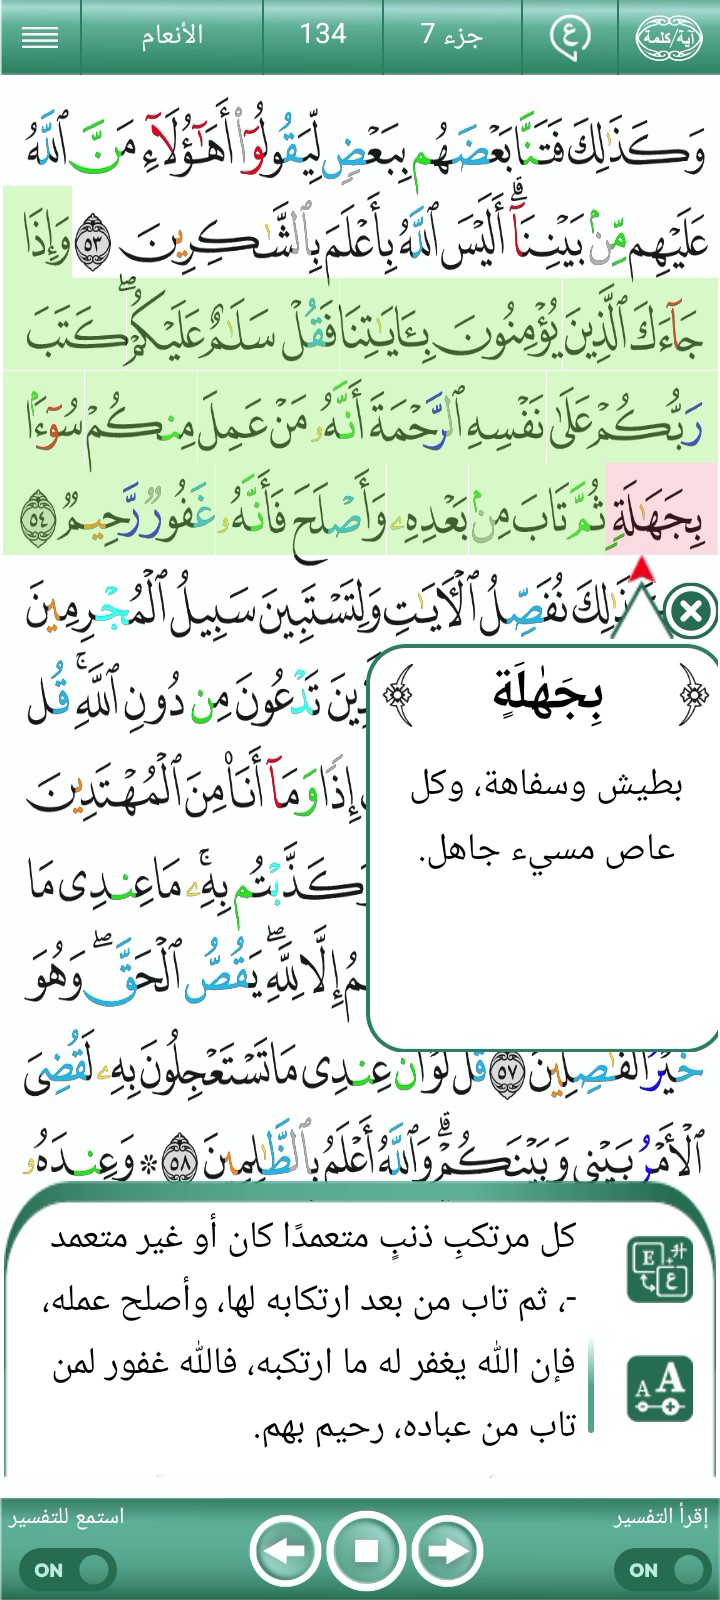 آية/كلمة
ع
جزء 7
134
الأنعام
وَكَذَٰلِكَ فَتَنَّا بَعْضَهُم بِبَعْضٍ لِّيَقُولُوٓا۟ أَهَـٰٓؤُلَآءِ مَنَّ ٱللَّهُ
عَلَيْهِم مِّنۢ بَيْنِنَآ ۗ أَلَيْسَ ٱللَّهُ بِأَعْلَمَ بِٱلشَّـٰكِرِينَ ٥٣ وَإِذَا
جَآءَكَ ٱلَّذِينَ يُؤْمِنُونَ بِـَٔايَـٰتِنَا فَقُلْ سَلَـٰمٌ عَلَيْكُمْ ۖ كَتَبَ
رَبُّكُمْ عَلَىٰ نَفْسِهِ ٱلرَّحْمَةَ أَنَّهُۥ مَنْ عَمِلَ مِنكُمْ سُوٓءًۢا
بِجَهَـٰلَةٍ ثُمَّ تَابَ مِنۢ بَعْدِهِۦ وَأَصْلَحَ فَأَنَّهُۥ غَفُورٌ رَّحِيمٌ ٥٤
ذَٰلِكَ نُفَصِّلُ ٱلْـَٔايَـٰتِ وَلِتَسْتَبِينَ سَبِيلُ ٱلْمُجْرِمِينَ
تَدْعُونَ مِن دُونِ ٱللَّهِ ۚ قُل
إِذًا وَمَآ أَنَا۠ مِنَ ٱلْمُهْتَدِينَ
وَكَذَّبْتُم بِهِۦ ۚ مَا عِندِى مَا
إِلَّا لِلَّهِ ۖ يَقُصُّ ٱلْحَقَّ ۖ وَهُوَ
خَيْرُ ٱلْفَـٰصِلِينَ ٥٧ قُل لَّوْ أَنَّ عِندِى مَا تَسْتَعْجِلُونَ بِهِۦ لَقُضِىَ
ٱلْأَمْرُ بَيْنِى وَبَيْنَكُمْ ۗ وَٱللَّهُ أَعْلَمُ بِٱلظَّـٰلِمِينَ ٥٨ * وَعِندَهُۥ
﴿ بِجَهَـٰلَةٍ ﴾
بطيش وسفاهة، وكل
عاص مسيء جاهل.
كل مرتكبِ ذنبٍ متعمدًا كان أو غير متعمد
-، ثم تاب من بعد ارتكابه لها، وأصلح عمله،
فإن الله يغفر له ما ارتكبه، فالله غفور لمن
تاب من عباده، رحيم بهم.
E
ع
A A
إقرأ التفسير
استمع للتفسير
ON
ON